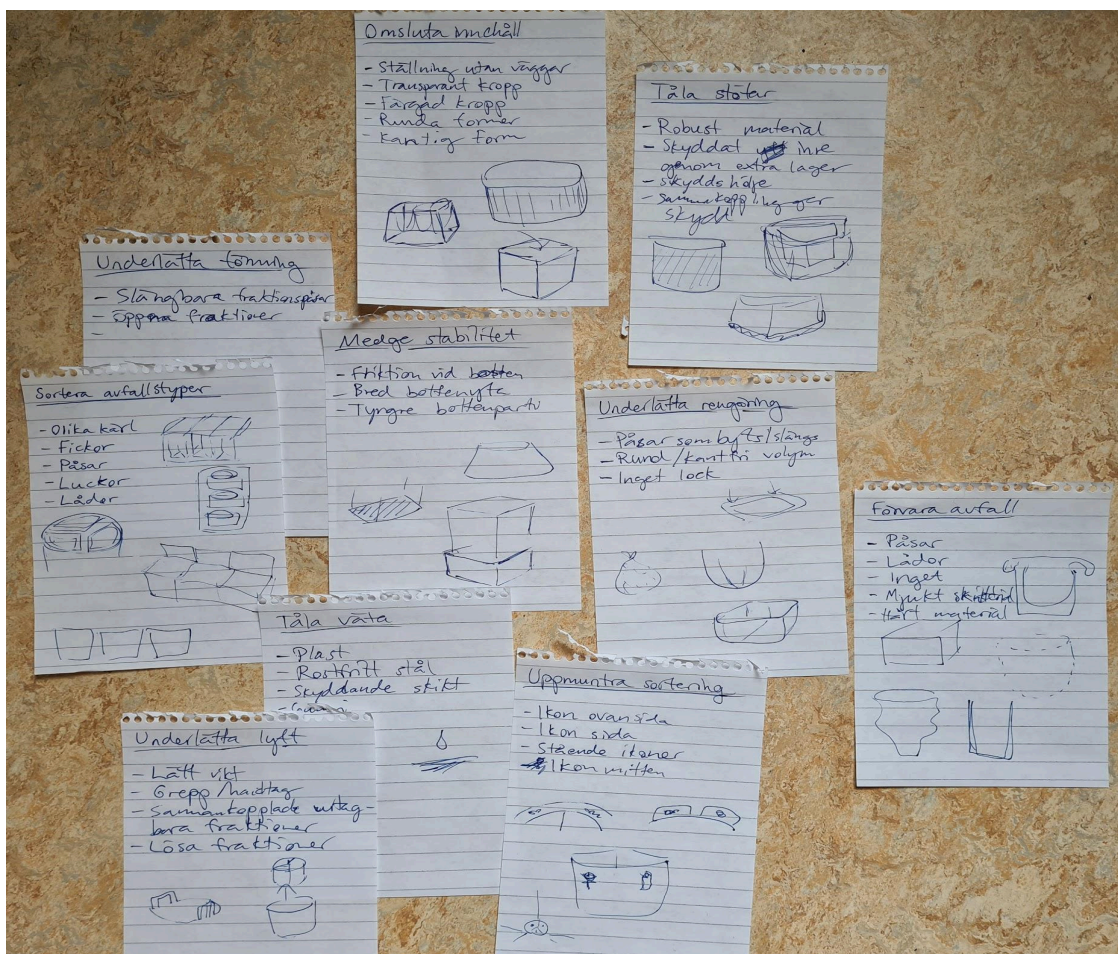 Omsluta innehåll
- Ställning utan väggar
- Transparant kropp
- Färgad kropp
- Runda former
- Kantig form
Tåla stötar
- Robust material
- Skyddat inre
genom extra lager
- skyddshölje
- sammankoppling ger
skydd
Underlätta tömning
- Slängbara fraktionspåsar
- öppna fraktioner
-
Medge stabilitet
- Friktion vid botten
- Bred bottenyta
- Tyngre bottenparti
Sortera avfallstyper
- Olika kärl
- Fickor
- Påsar
- Luckor
- Lådor
Underlätta rengöring
- Påsar som byts/slängs
- Rund/kantfri volym
- Inget lock
Förvara avfall
- Påsar
- Lådor
- Inget
- Mjukt
- Hårt material
Tåla väta
- Plast
- Rostfritt stål
- Skyddande skikt
Uppmuntra sortering
- Ikon ovansida
- Ikon sida
- Stående ikoner
- Ikon mitten
Underlätta lyft
- Lätt vikt
- Grepp/handtag
- Sammankopplade urtag-
bara fraktioner
- Lösa fraktioner